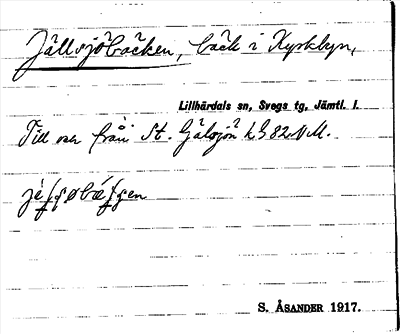 Jällsjöbäcken, bäck i Kyrkbyn,
Lillhärdals sn, Svegs tg, Jämtl. l.
Till ven från St. Gälsjön k G 82 NM.
S. ÅSANDER 1917.